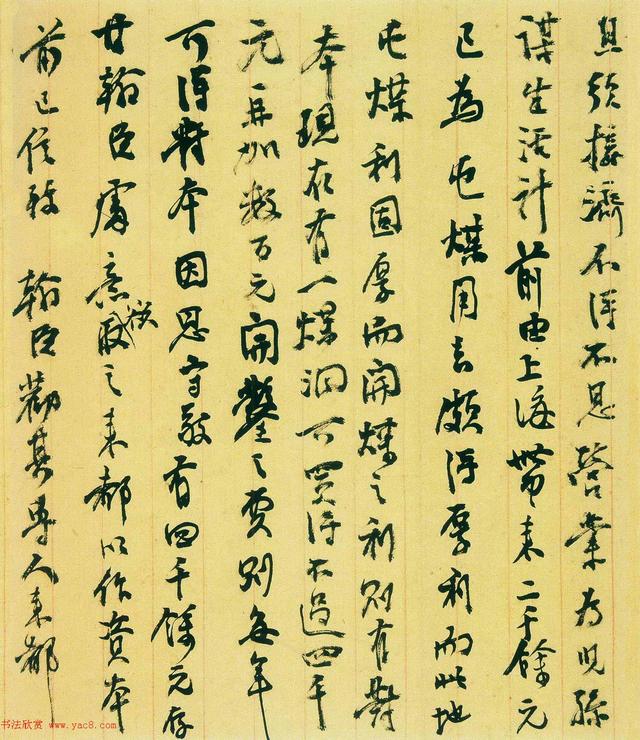 且须接濟不得不思營業为兒孫
謀生活計前由上海帶来二千餘元
已為屯煤用去頗得厚利而此地
屯煤利固厚而開煤之利則有對
本現在有一煤洞可買得不過四千
元再加数百元開鑿之費則每年
可得對本因思守敬有四千餘元存
甘翰臣處意欲取之来都以作資本
前已信致 翰臣勸其專人来都
书法欣赏 www.yac8.com